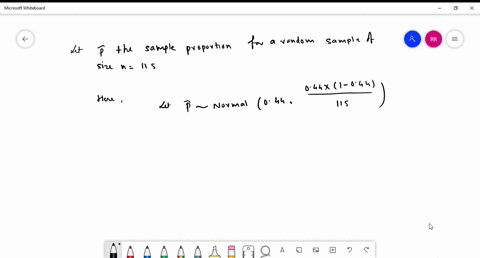 Microsoft Whiteboard
RR
Let p̂ the sample proportion for a random sample of
size n = 115
Here,
Let p̂ ~ Normal ( 0.44, 0.44 x (1 - 0.44) / 115 )
A